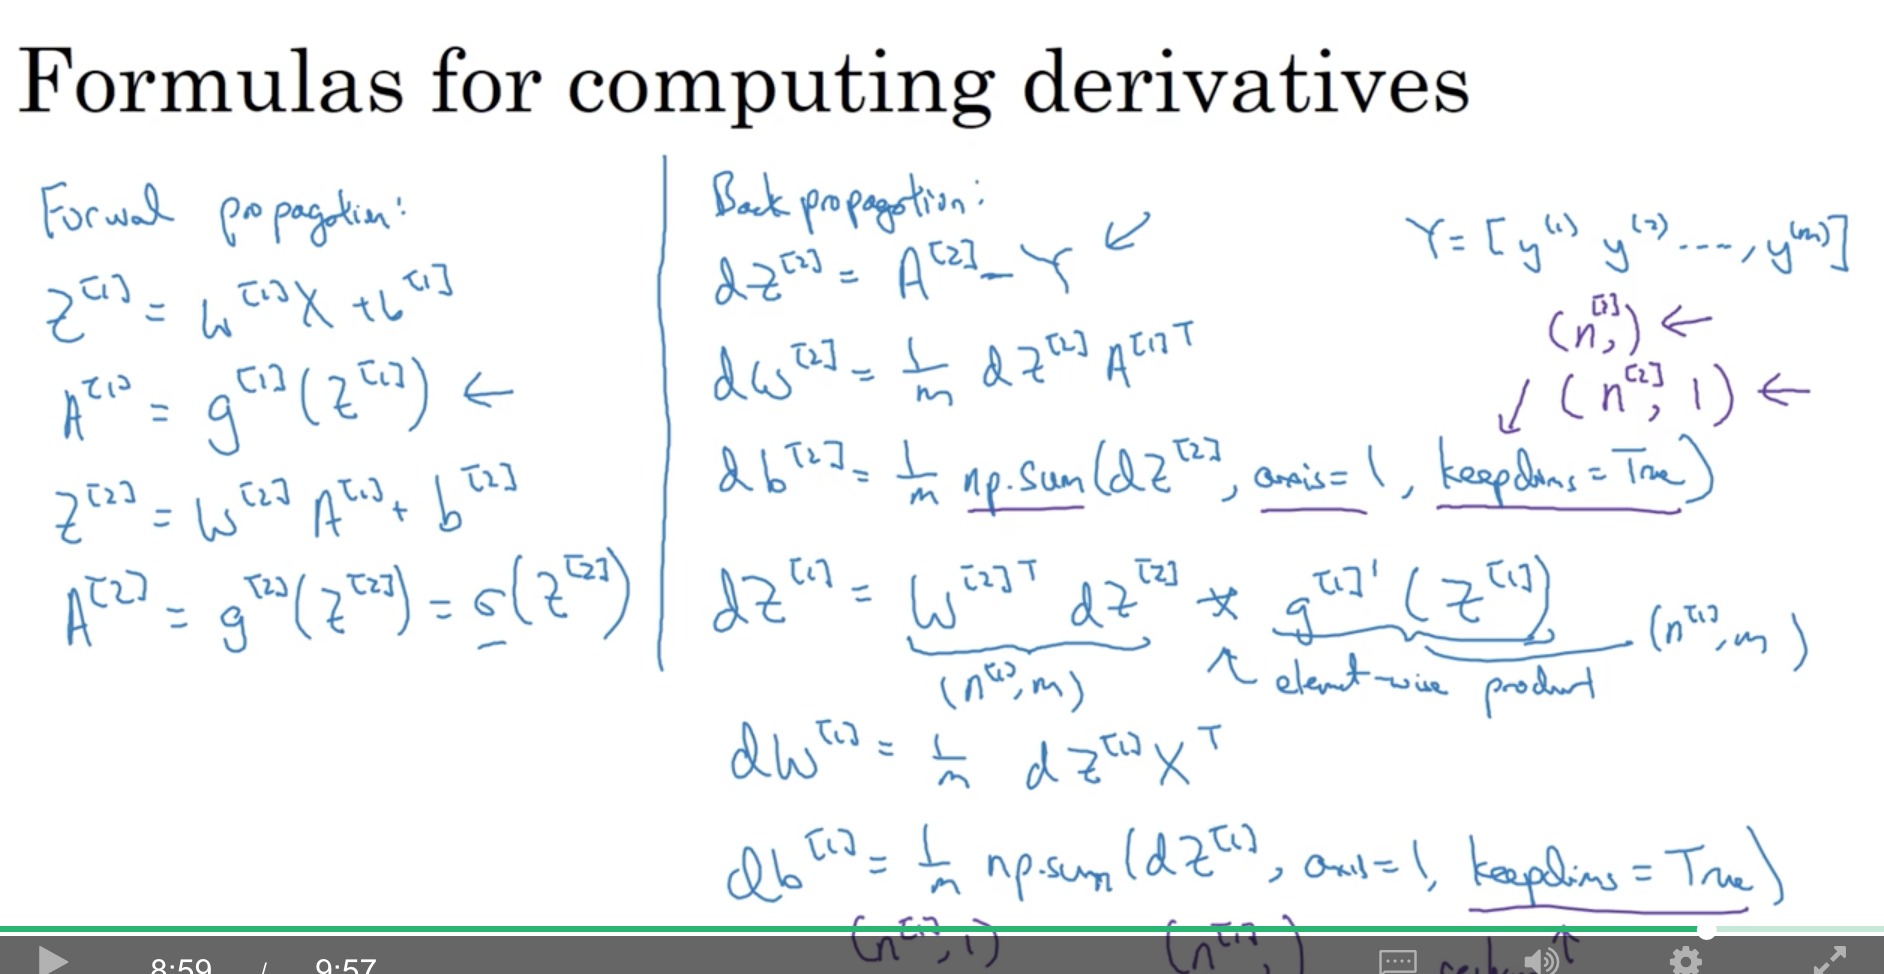 Formulas for computing derivatives
Forwal propagation:
Z^[1] = W^[1]X + b^[1]
A^[1] = g^[1](Z^[1]) ←
Z^[2] = W^[2] A^[1] + b^[2]
A^[2] = g^[2](Z^[2]) = σ(Z^[2])
Back propagation:
dZ^[2] = A^[2] - Y ↙
dW^[2] = 1/m dZ^[2] A^[1]T
db^[2] = 1/m np.sum(dZ^[2], axis=1, keepdims=True)
dZ^[1] = W^[2]T dZ^[2] * g^[1]'(Z^[1])
(n^[1], m) ↖ element-wise product (n^[1], m)
dW^[1] = 1/m dZ^[1] X^T
db^[1] = 1/m np.sum(dZ^[1], axis=1, keepdims=True)
(n^[1], 1) (n^[1],) ↑
Y = [y^(1) y^(2) ...., y^(m)]
(n^[2],) ←
↙ (n^[2], 1) ←
8:59 / 9:57